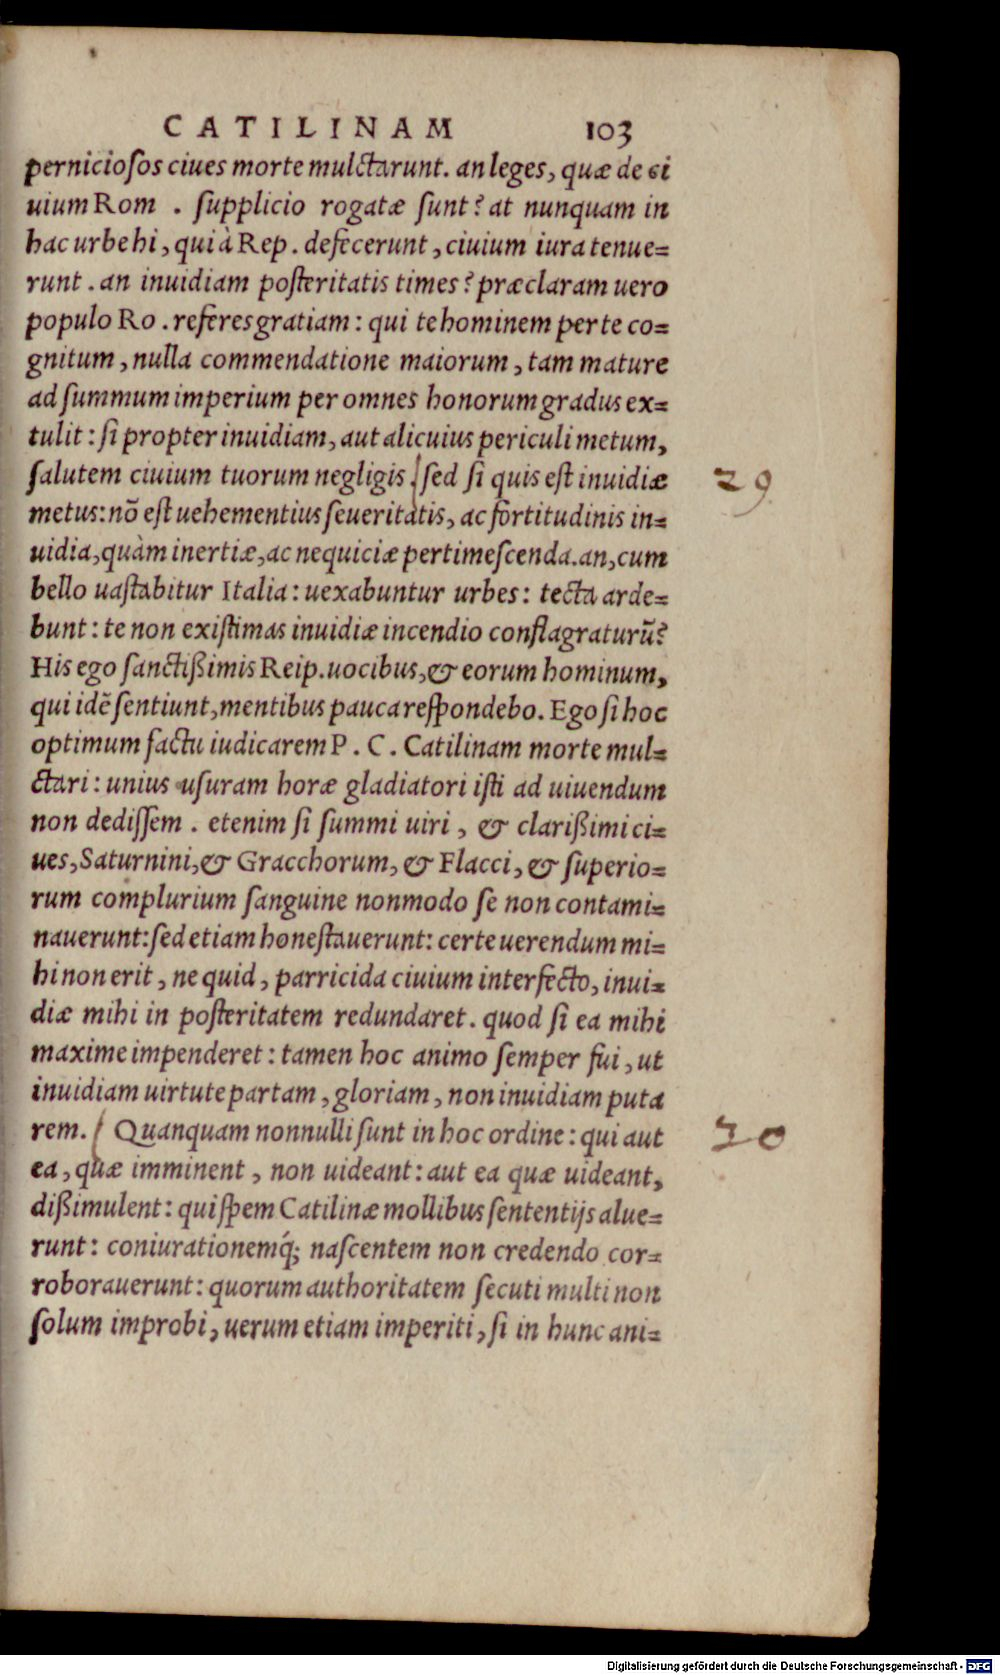 CATILINAM 103
pernicioſos ciues morte mulctarunt. an leges, quæ de ci
uium Rom . ſupplicio rogatæ ſunt? at nunquam in
hac urbe hi, qui à Rep. defecerunt, ciuium iura tenue=
runt . an inuidiam poſteritatis times? præclaram uero
populo Ro . referes gratiam: qui te hominem per te co=
gnitum, nulla commendatione maiorum, tam mature
ad ſummum imperium per omnes honorum gradus ex=
tulit: ſi propter inuidiam, aut alicuius periculi metum,
ſalutem ciuium tuorum negligis. ſed ſi quis eſt inuidiæ 29
metus: nõ eſt uehementius ſeueritatis, ac fortitudinis in=
uidia, quàm inertiæ, ac nequiciæ pertimeſcenda. an, cum
bello uaſtabitur Italia: uexabuntur urbes: tecta arde=
bunt: te non exiſtimas inuidiæ incendio conflagraturũ?
His ego ſanctißimis Reip. uocibus, & eorum hominum,
qui idẽ ſentiunt, mentibus pauca reſpondebo. Ego ſi hoc
optimum factu iudicarem P . C . Catilinam morte mul=
ctari: unius uſuram horæ gladiatori iſti ad uiuendum
non dediſſem . etenim ſi ſummi uiri, & clarißimi ci=
ues, Saturnini, & Gracchorum, & Flacci, & ſuperio=
rum complurium ſanguine nonmodo ſe non contami=
nauerunt: ſed etiam honeſtauerunt: certe uerendum mi=
hi non erit, ne quid, parricida ciuium interfecto, inui=
diæ mihi in poſteritatem redundaret. quod ſi ea mihi
maxime impenderet: tamen hoc animo ſemper fui, ut
inuidiam uirtute partam, gloriam, non inuidiam puta
rem. Quanquam nonnulli ſunt in hoc ordine: qui aut 30
ea, quæ imminent, non uideant: aut ea quæ uideant,
dißimulent: qui ſpem Catilinæ mollibus ſententijs alue=
runt: coniurationemq́; naſcentem non credendo cor=
roborauerunt: quorum authoritatem ſecuti multi non
ſolum improbi, uerum etiam imperiti, ſi in hunc ani=
Digitalisierung gefördert durch die Deutsche Forschungsgemeinschaft - DFG